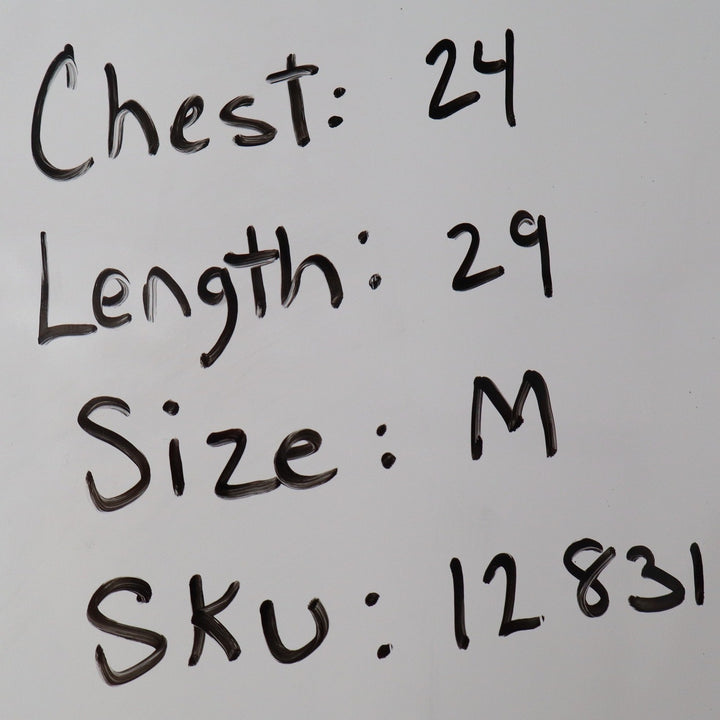 Chest: 24
Length: 29
Size: M
SKU: 12831